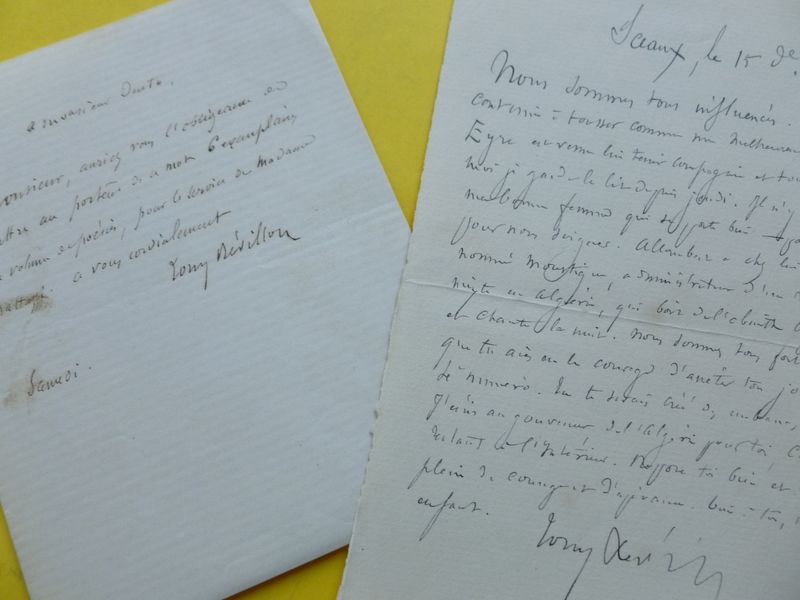 a monsieur
onsieur, auriez vous l'obligeance de
ettre au porteur de ce mot 6 exemplaires
volume de poésies, pour le service de Madame
a vous cordialement
Tony Révillon
Samedi.
Sceaux, le 15 de
Nous sommes tous influencés.
continue à tousser comme un malheureux
est venu lui tenir compagnie et
moi je garde le lit depuis jeudi. Il n'y
ma bonne femme qui supporte bien
pour nous soigner. a chez lui
nommé Moustique, administrateur d'un
mixte en Algérie, qui boit de l'absinthe
et chante la nuit. Nous sommes tous
que tu aies eu le courage d'arrêter ton
numéro. Tu te serais créé des embarras,
J'écris au gouverneur de l'Algérie pour toi,
à l'Intérieur. Repose toi bien et
plein de courage et d'espérance. bien à toi,
enfant.
Tony Révillon